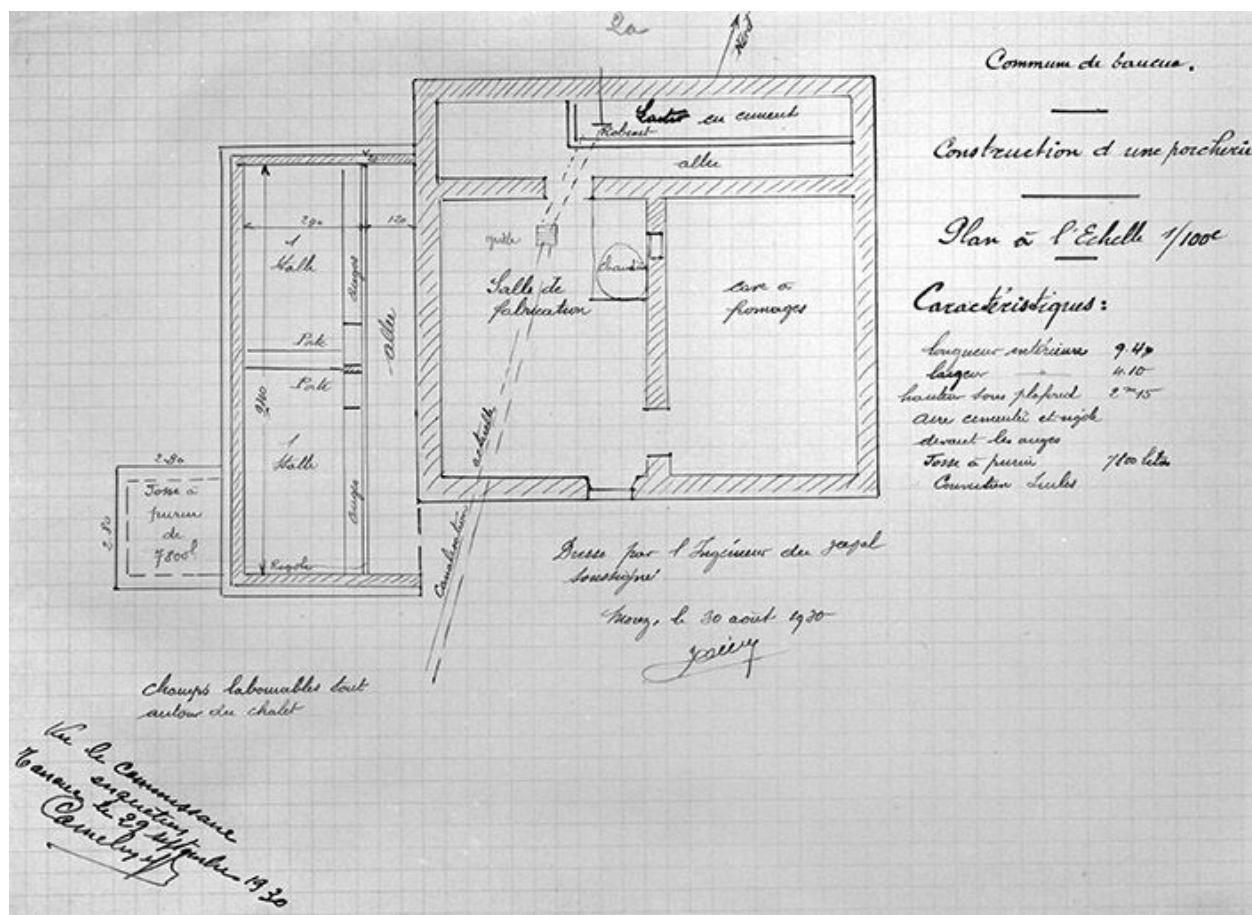 2a
Nord
Commune de
Construction d une porcherie
Plan à l'Echelle 1/100e
Caractéristiques:
longueur intérieure 9.40
largeur 4.10
hauteur sous plafond 2m15
aire cimentée et rigole
devant les auges
Fosse à purin 7800 litres
en ciment
Robinet
allée
grille
chaudière
Salle de
fabrication
cave à
fromages
290
120
1
Stalle
auges
allée
Porte
Porte
940
1
Stalle
auges
Rigole
2.80
2.80
Fosse à
purin
de
7800l
Canalisation actuelle
Dressé par l'Ingénieur du
soussigné
Morez, le 30 août 1930
champs labourables tout
autour du chalet
Vu le Commissaire
enquêteur
le 29 septembre 1930